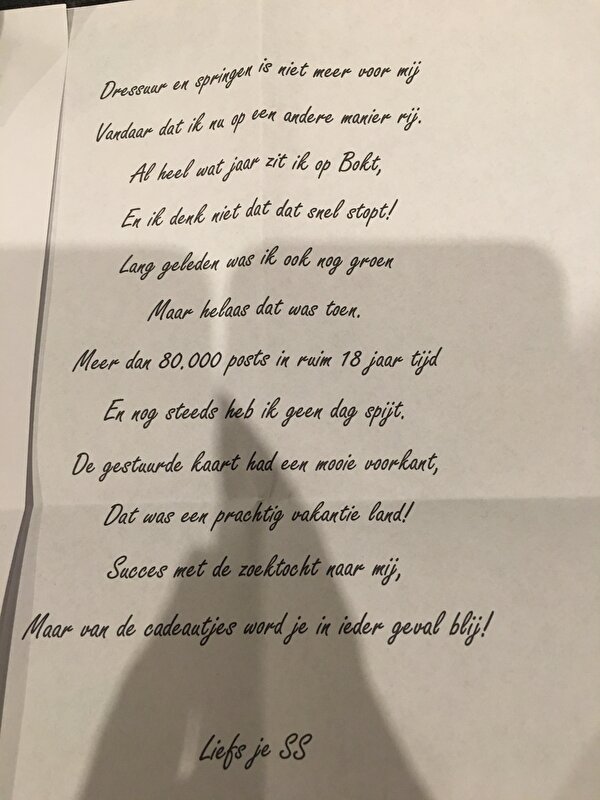 Dressuur en springen is niet meer voor mij
Vandaar dat ik nu op een andere manier rij.
Al heel wat jaar zit ik op Bokt,
En ik denk niet dat dat snel stopt!
Lang geleden was ik ook nog groen
Maar helaas dat was toen.
Meer dan 80.000 posts in ruim 18 jaar tijd
En nog steeds heb ik geen dag spijt.
De gestuurde kaart had een mooie voorkant,
Dat was een prachtig vakantie land!
Succes met de zoektocht naar mij,
Maar van de cadeautjes word je in ieder geval blij!
Liefs je SS